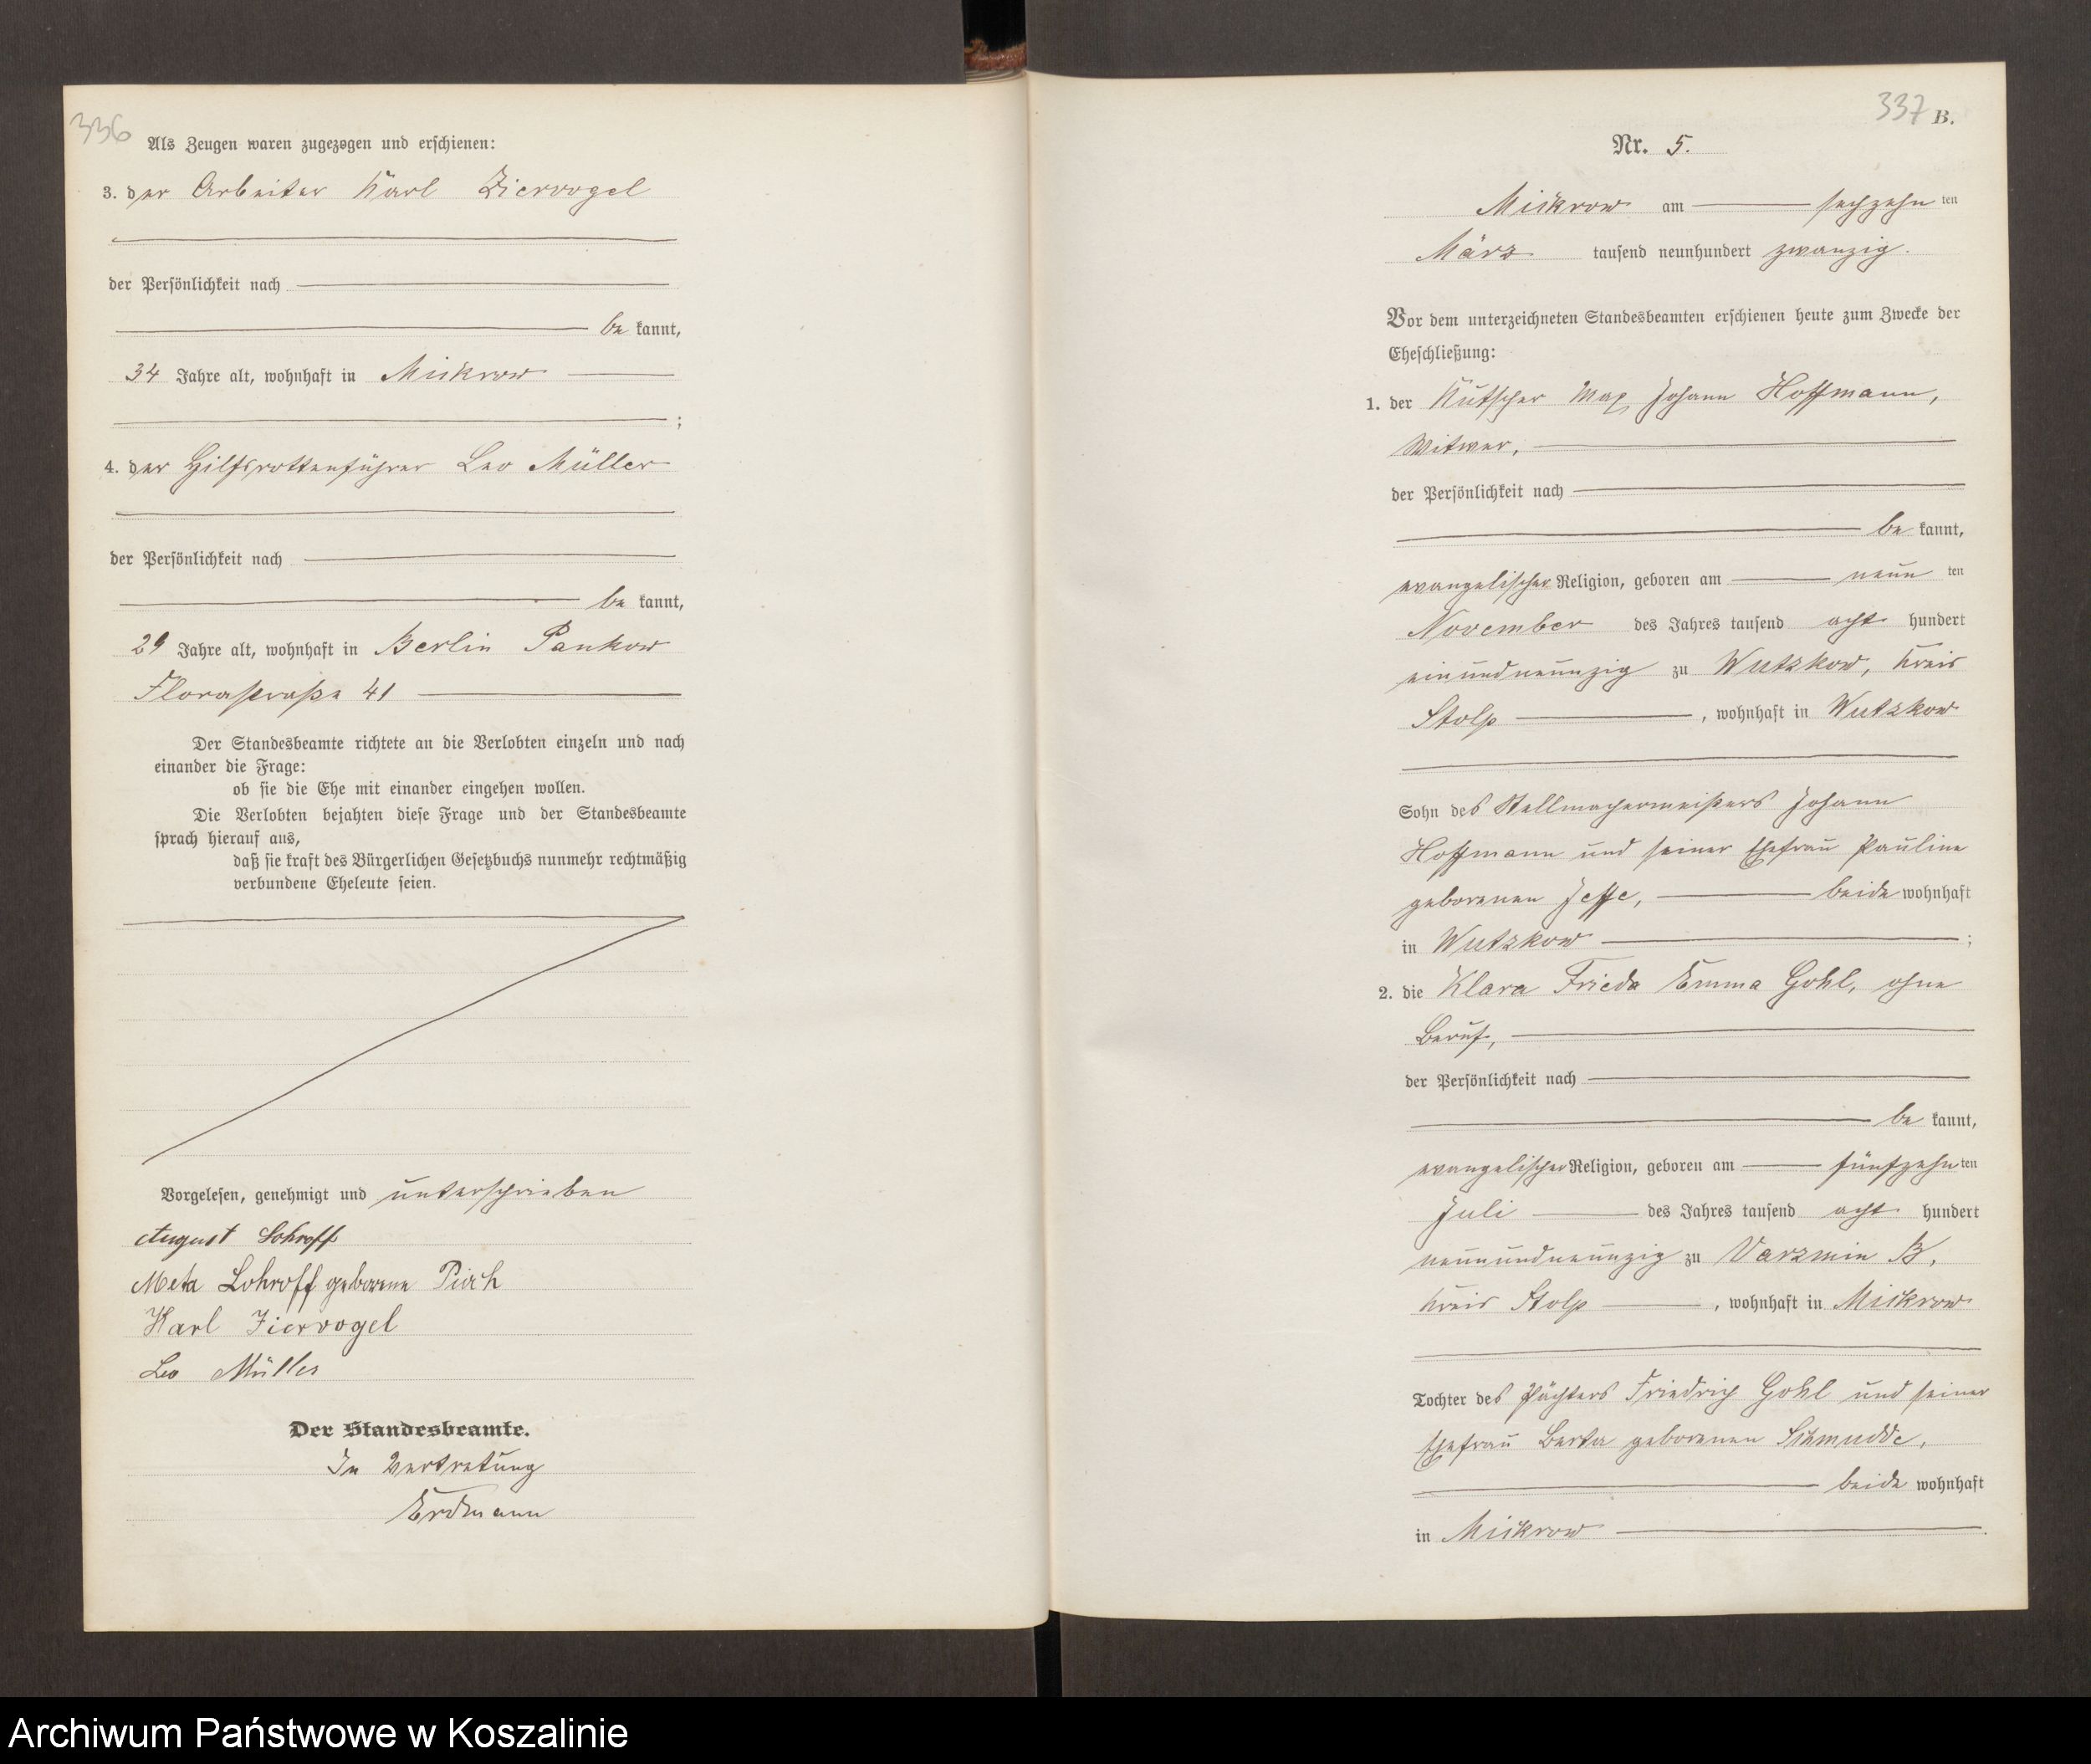 336
Als Zeugen waren zugezogen und erschienen:
3. der Arbeiter Karl Ziervogel
der Persönlichkeit nach
be kannt,
34 Jahre alt, wohnhaft in Mickrow
;
4. der Hilfsrottenführer Leo Müller
der Persönlichkeit nach
be kannt,
29 Jahre alt, wohnhaft in Berlin Pankow
Florastraße 41
Der Standesbeamte richtete an die Verlobten einzeln und nach
einander die Frage:
ob sie die Ehe mit einander eingehen wollen.
Die Verlobten bejahten diese Frage und der Standesbeamte
sprach hierauf aus,
daß sie kraft des Bürgerlichen Gesetzbuchs nunmehr rechtmäßig
verbundene Eheleute seien.
Vorgelesen, genehmigt und unterschrieben
August Lohroff
Meta Lohroff geborene Pirch
Karl Ziervogel
Leo Müller
Der Standesbeamte.
In Vertretung
Erdmann
337 B.
Nr. 5.
Mickrow am sechzehn ten
März tausend neunhundert zwanzig.
Vor dem unterzeichneten Standesbeamten erschienen heute zum Zwecke der
Eheschließung:
1. der Kutscher Max Johann Hoffmann,
Witwer,
der Persönlichkeit nach
be kannt,
evangelischer Religion, geboren am neun ten
November des Jahres tausend acht hundert
einundneunzig zu Wutzkow, Kreis
Stolp , wohnhaft in Wutzkow
Sohn des Stellmachermeisters Johann
Hoffmann und seiner Ehefrau Pauline
geborenen Jeffe, beide wohnhaft
in Wutzkow ;
2. die Klara Frieda Emma Gohl, ohne
Beruf,
der Persönlichkeit nach
be kannt,
evangelischer Religion, geboren am fünfzehn ten
Juli des Jahres tausend acht hundert
neunundneunzig zu Varzmin B,
Kreis Stolp , wohnhaft in Mickrow
Tochter des Pächters Friedrich Gohl und seiner
Ehefrau Berta geborenen Schmudde,
beide wohnhaft
in Mickrow .
Archiwum Państwowe w Koszalinie